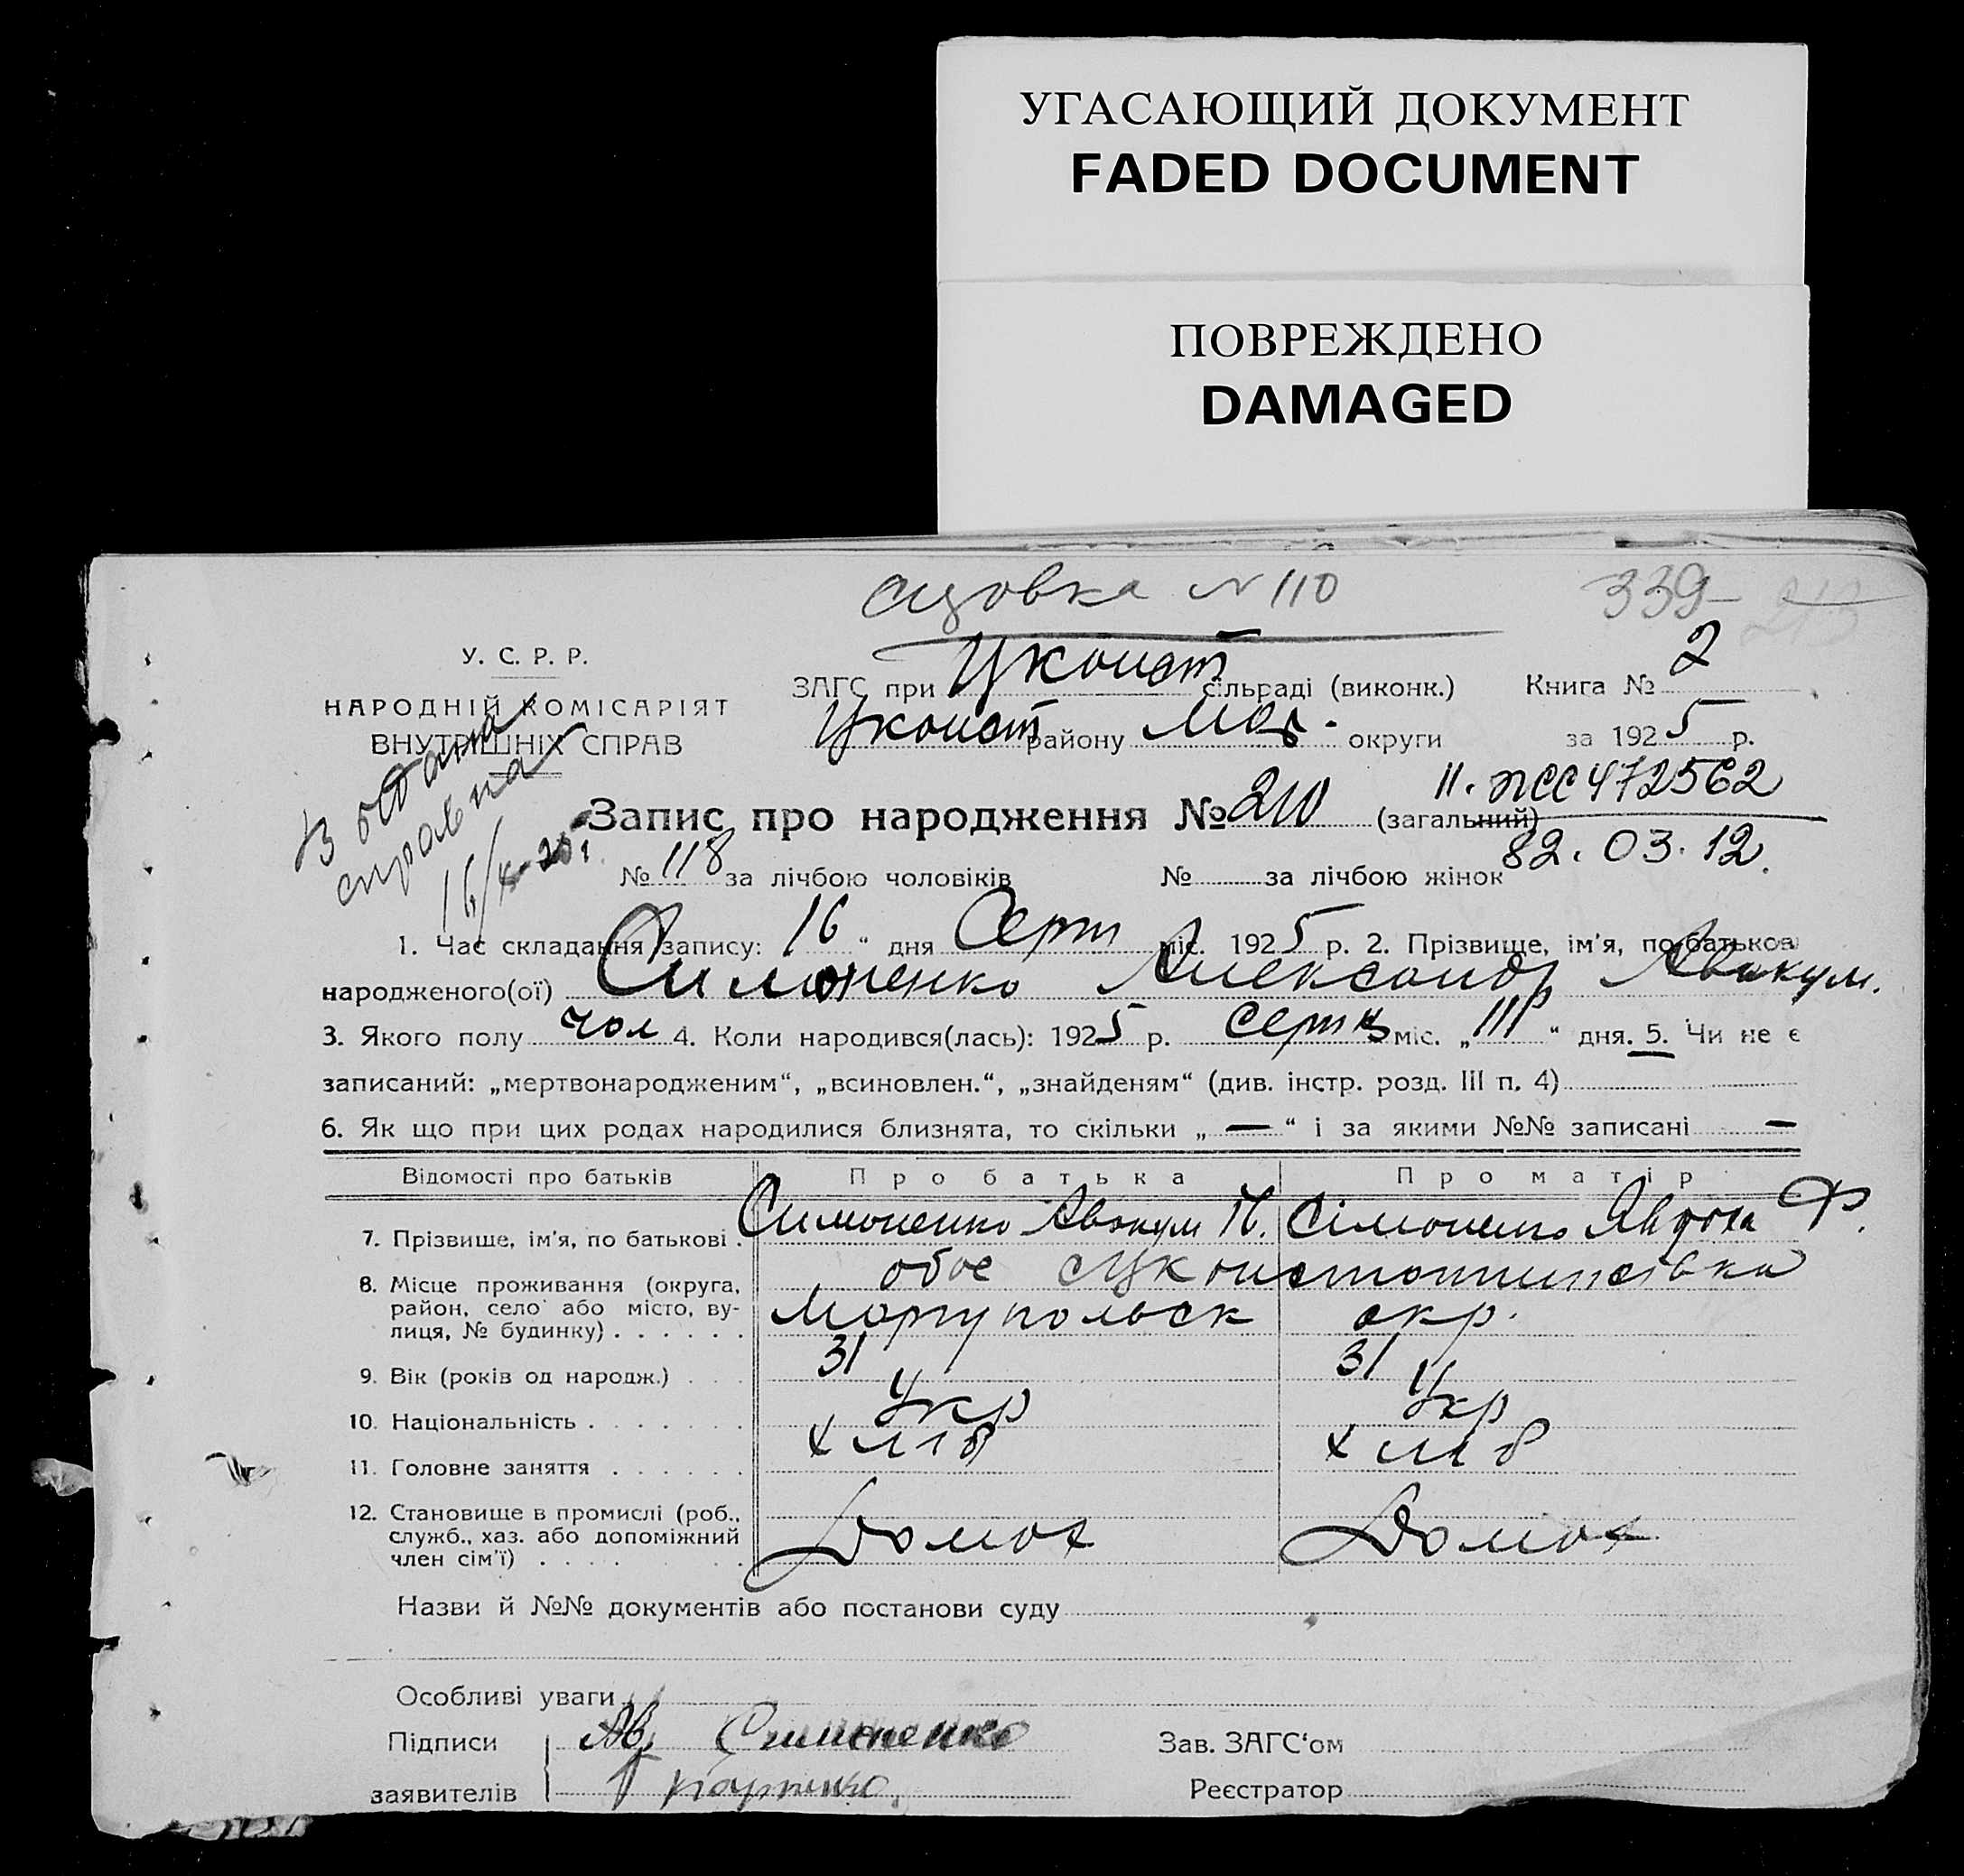 УГАСАЮЩИЙ ДОКУМЕНТ
FADED DOCUMENT
ПОВРЕЖДЕНО
DAMAGED
N 110 339
У. С. Р. Р.
НАРОДНІЙ КОМІСАРІЯТ
ВНУТРІШНІХ СПРАВ
ЗАГС при Уконст сільраді (виконк.) Книга № 2
Уконст району Мар. округи за 1925 р.
справка
16/X-25
Запис про народження № 210 (загальний)
472562
82. 03. 12.
№ 118 за лічбою чоловіків № за лічбою жінок
1. Час складання запису: 16 " дня Серп міс. 1925 р. 2. Прізвище, ім'я, по батькові
народженого(ої) Симоненко Александр Авакум.
3. Якого полу чол 4. Коли народився(лась): 1925 р. серпн міс. „ " дня. 5. Чи не є
записаний: „мертвонародженим“, „всиновлен.“, „знайденям“ (див. інстр. розд. III п. 4)
6. Як що при цих родах народилися близнята, то скільки „ — “ і за якими №№ записані —
Відомості про батьків Про батька Про матір
7. Прізвище, ім'я, по батькові . Симоненко Авакум Сімоненко Ф.
8. Місце проживання (округа, обое
район, село або місто, ву- Марупольск окр.
лиця, № будинку) . . . . . .
9. Вік (років од народж.) . . . 31 31
10. Національність . . . . . . . Укр Укр
11. Головне заняття . . . . . . хліб хліб
12. Становище в промислі (роб.,
служб., хаз. або допоміжний Домох Домох
член сім'ї) . . . . . . . . .
Назви й №№ документів або постанови суду
Особливі уваги
Підписи Ав. Симоненко Зав. ЗАГС'ом
заявителів Реєстратор